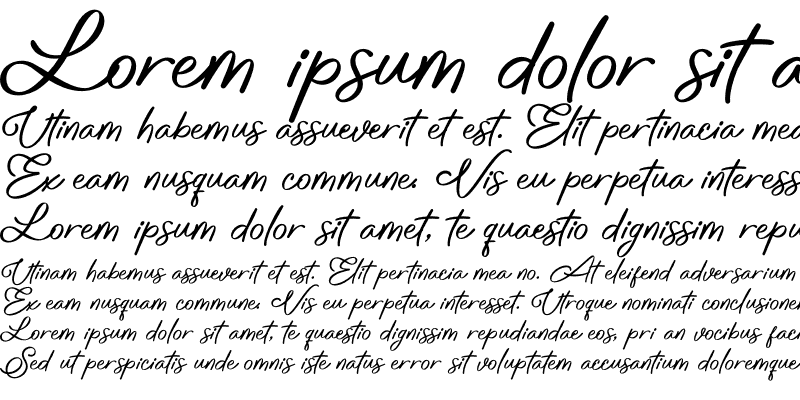 Lorem ipsum dolor sit a
Utinam habemus assueverit et est. Elit pertinacia mea
Ex eam nusquam commune. Vis eu perpetua interess
Lorem ipsum dolor sit amet, te quaestio dignissim repu
Utinam habemus assueverit et est. Elit pertinacia mea no. At eleifend adversarium
Ex eam nusquam commune. Vis eu perpetua interesset. Utroque nominati conclusione
Lorem ipsum dolor sit amet, te quaestio dignissim repudiandae eos, pri an vocibus faci
Sed ut perspiciatis unde omnis iste natus error sit voluptatem accusantium doloremque